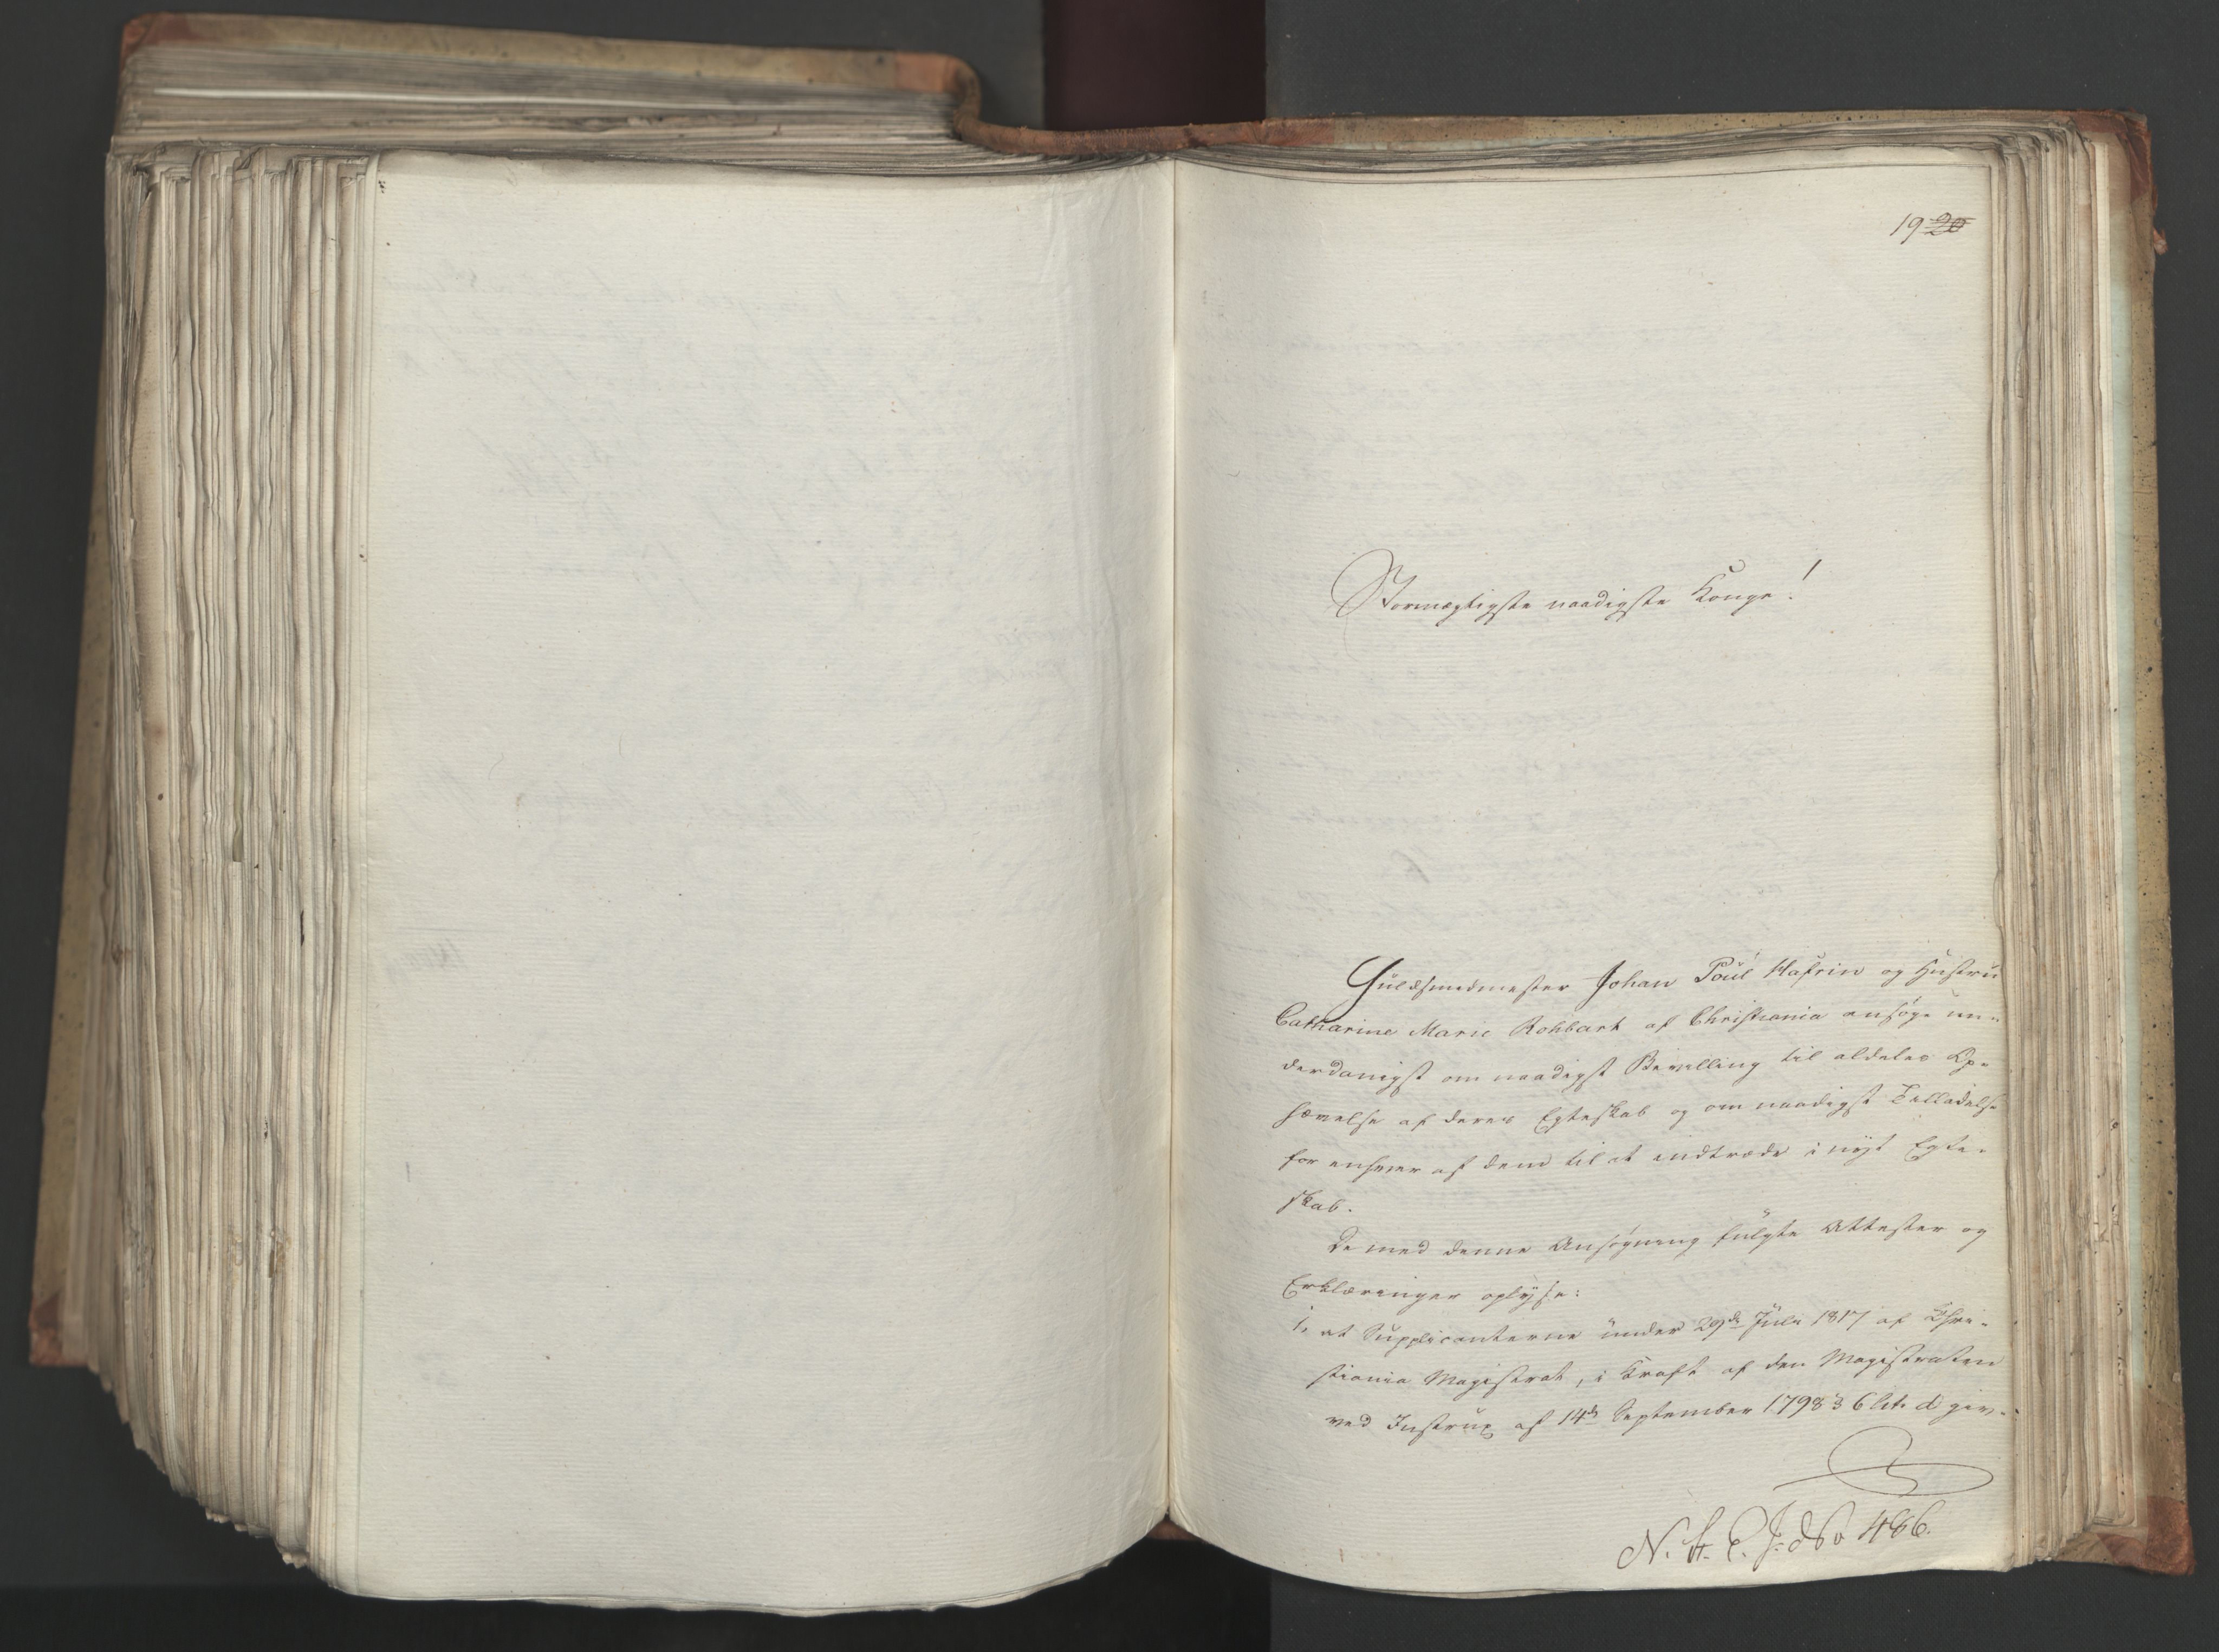 19 20
Stormægtigste naadigste Konge!
Guldsmedmester Johan Poul Hafrin og Hustru
Catharine Marie Rohbart af Christiania ansøge un-
derdanigst om naadigst Bevilling til aldeles Op-
hævelse af deres Egteskab og om naadigst Tilladelse
for enhver af dem til at indtræde i nyt Egte-
skab.
De med denne Ansøgning fulgte Attester og
Erklæringer oplyse:
1, at Supplicanterne under 29de Juli 1817 af Chri-
stiania Magistrat, i Kraft af den Magistraten
ved Instrux af 14de September 1798 § 6 lit. d giv-
N. St. C. J. 466.